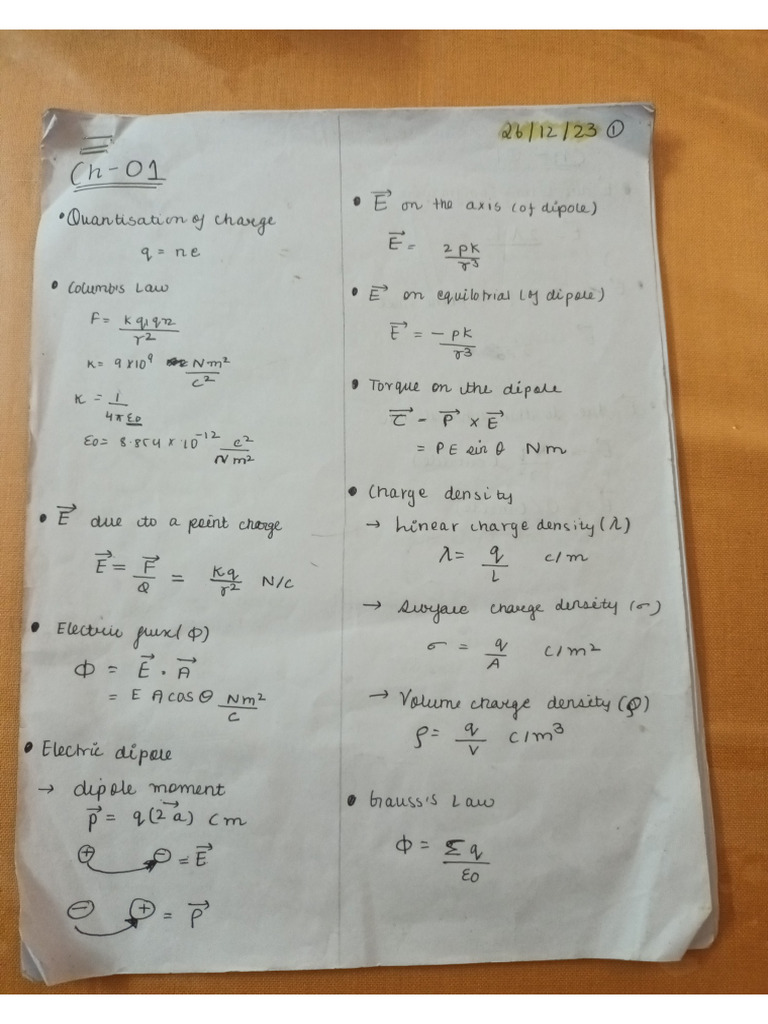 26/12/23 ①
Ch-01
• Quantisation of charge
q = ne
• Columbs Law
F = K q1 q2 / r²
K = 9×10⁹ Nm² / c²
K = 1 / 4π ε0
ε0 = 8.854 × 10⁻¹² c² / Nm²
• E⃗ due to a point charge
E⃗ = F⃗ / Q = Kq / r² N/C
• Electric flux (Φ)
Φ = E⃗ . A⃗
= E A cos θ Nm² / C
• Electric dipole
→ dipole moment
p⃗ = q(2a⃗) Cm
⊕ ⊖ = E⃗
⊖ ⊕ = P⃗
• E⃗ on the axis (of dipole)
E⃗ = 2pk / r³
• E⃗ on equilotrial (of dipole)
E⃗ = - pk / r³
• Torque on the dipole
τ⃗ - P⃗ × E⃗
= PE sin θ Nm
• Charge density
→ Linear charge density (λ)
λ = q / L c/m
→ Surface charge density (σ)
σ = q / A c/m²
→ Volume charge density (ρ)
ρ = q / v c/m³
• Gauss's Law
Φ = Σq / ε0